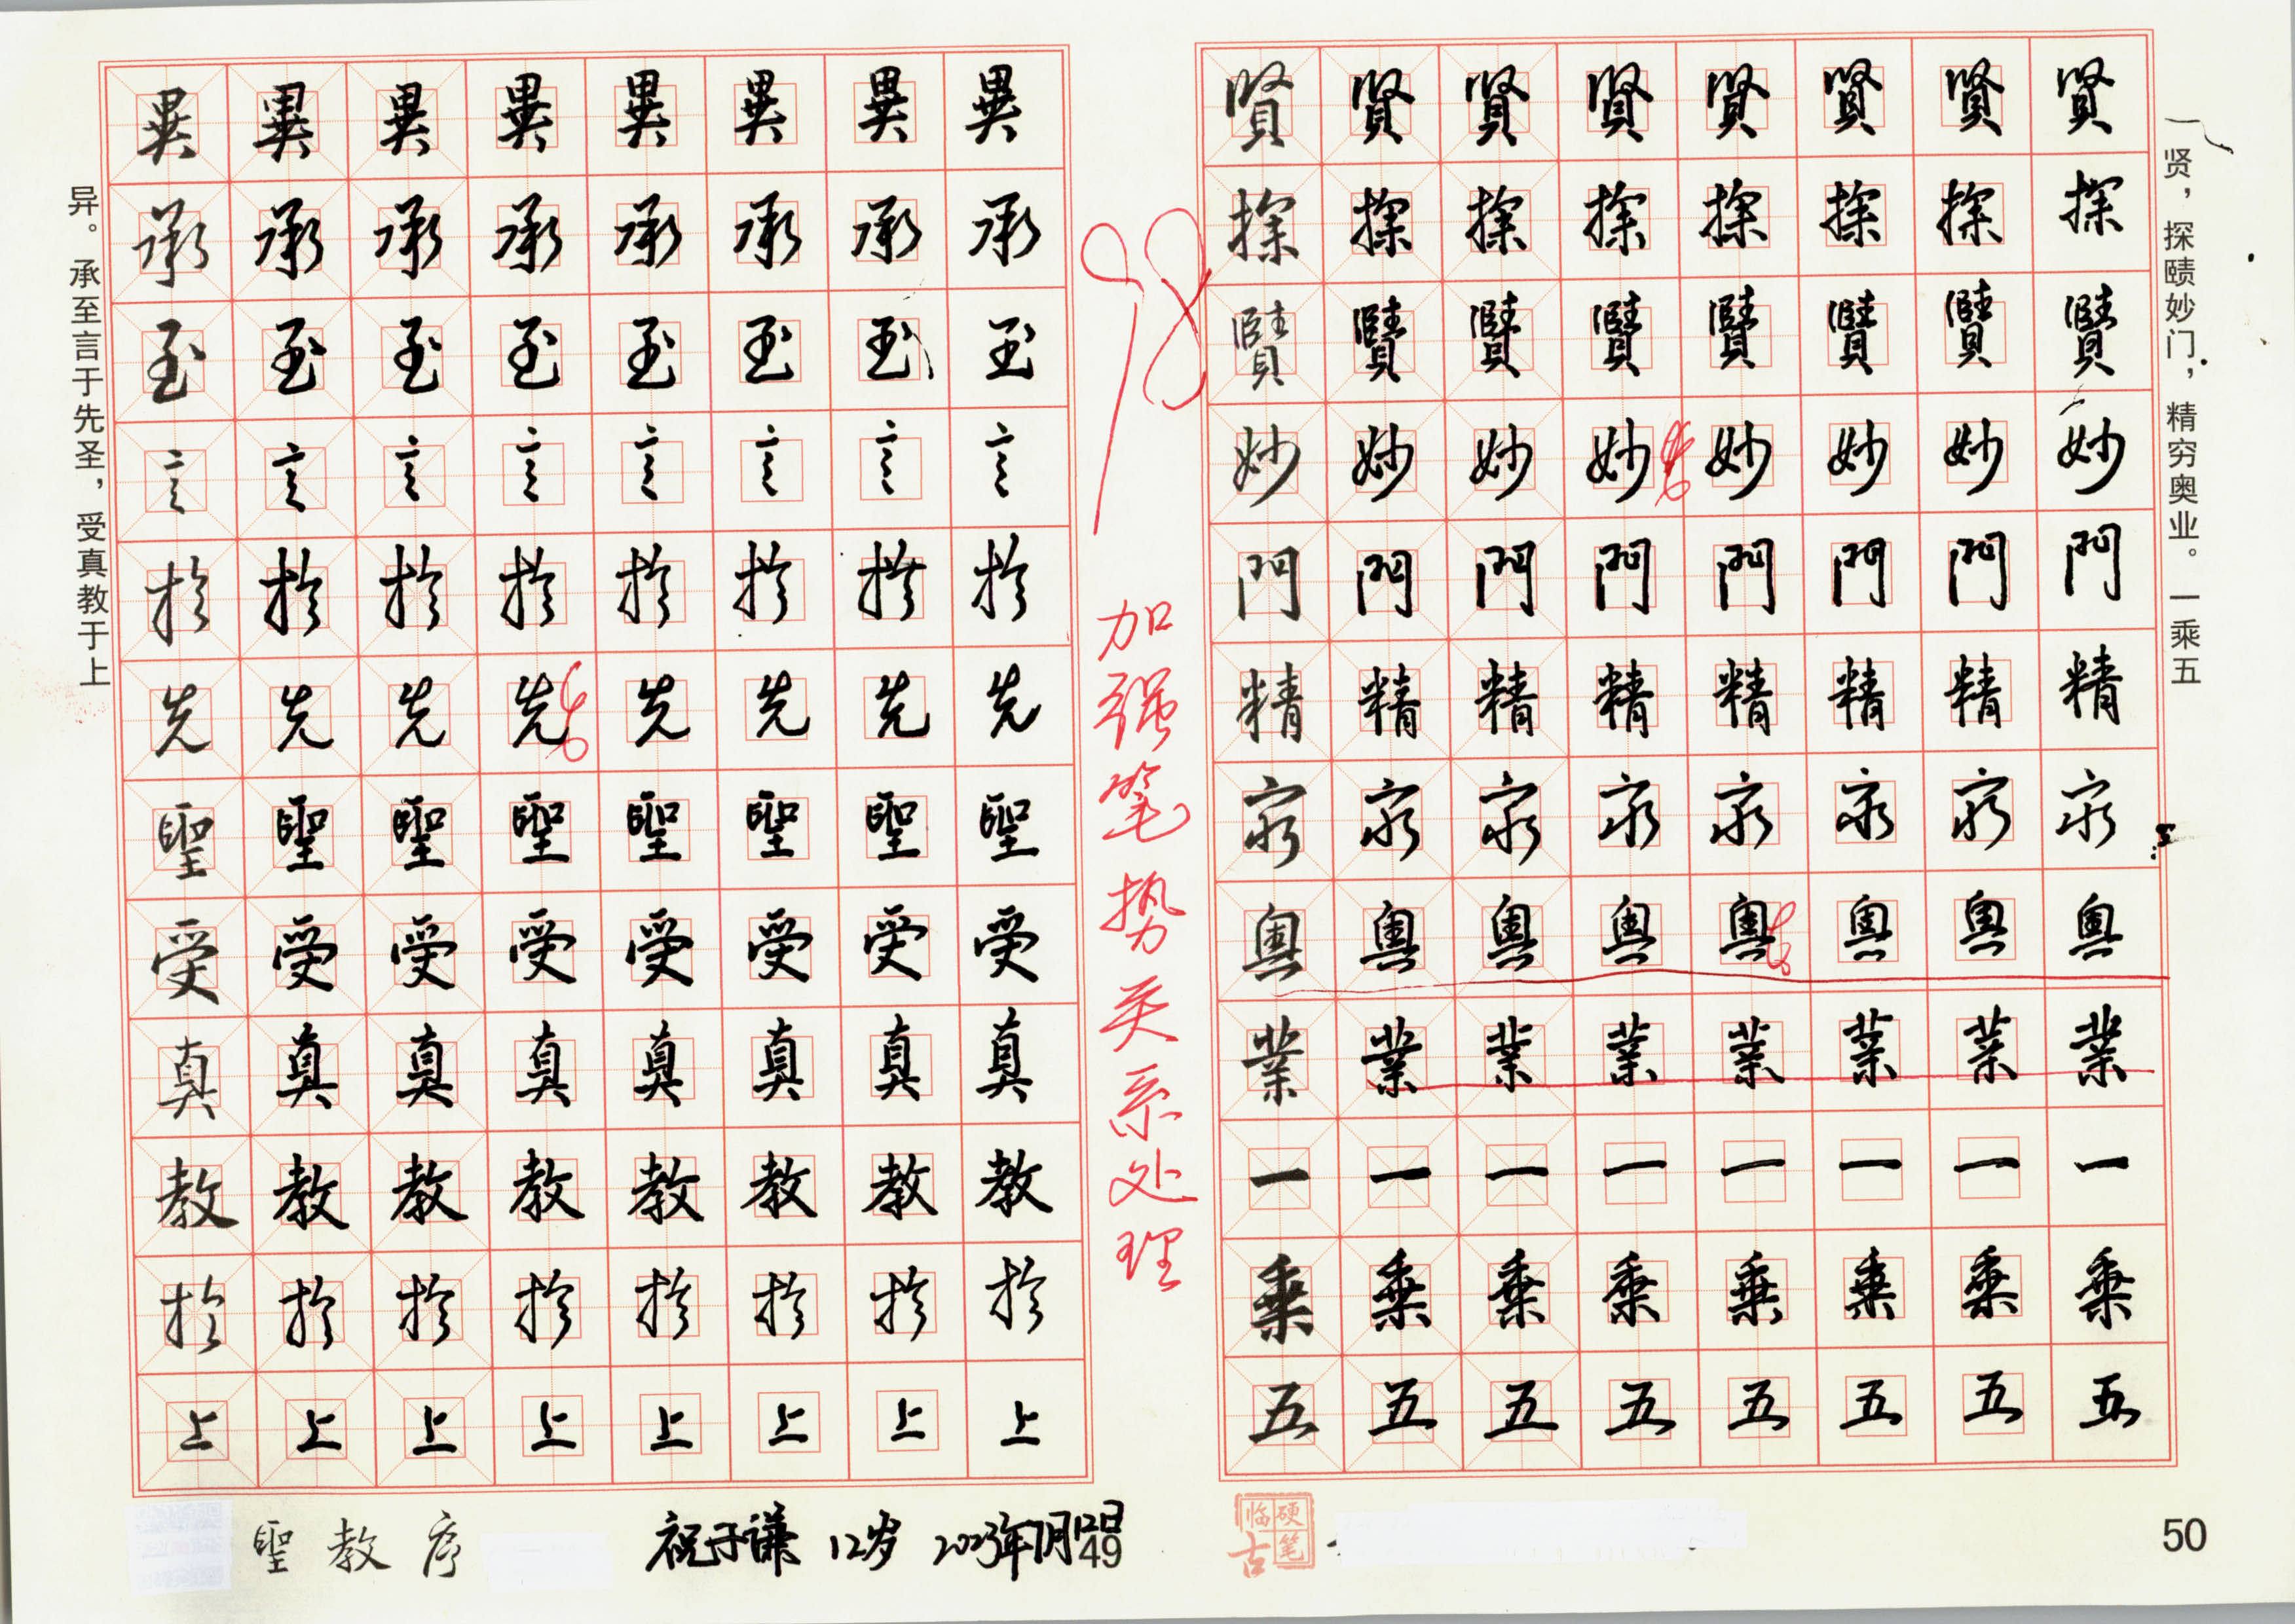 異 異 異 異 異 異 異 異
承 承 承 承 承 承 承 承
至 至 至 至 至 至 至 至
言 言 言 言 言 言 言 言
於 於 於 於 於 於 於 於
先 先 先 先 先 先 先 先
聖 聖 聖 聖 聖 聖 聖 聖
受 受 受 受 受 受 受 受
真 真 真 真 真 真 真 真
教 教 教 教 教 教 教 教
於 於 於 於 於 於 於 於
上 上 上 上 上 上 上 上
异。承至言于先圣，受真教于上
聖教序
祝子谦 12岁 2023年7月12日
49
98
加强笔势关系处理
賢 賢 賢 賢 賢 賢 賢 賢
探 探 探 探 探 探 探 探
賾 賾 賾 賾 賾 賾 賾 賾
妙 妙 妙 妙 妙 妙 妙 妙
門 門 門 門 門 門 門 門
精 精 精 精 精 精 精 精
窮 窮 窮 窮 窮 窮 窮 窮
奧 奧 奧 奧 奧 奧 奧 奧
業 業 業 業 業 業 業 業
一 一 一 一 一 一 一 一
乘 乘 乘 乘 乘 乘 乘 乘
五 五 五 五 五 五 五 五
贤，探赜妙门，精穷奥业。一乘五
硬笔临古
50